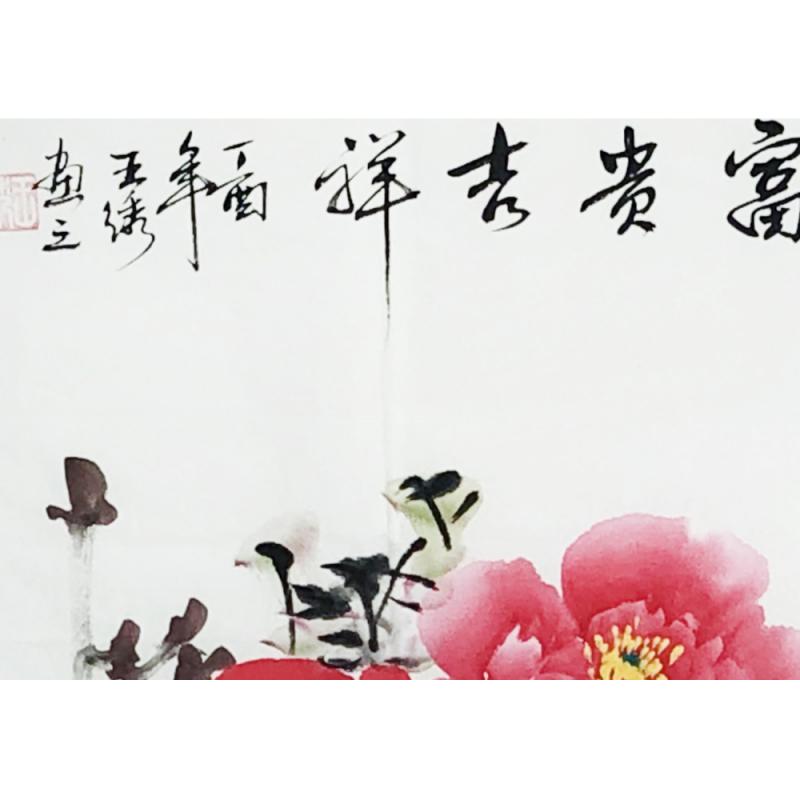 富贵吉祥
丁酉
年
王绣
画之